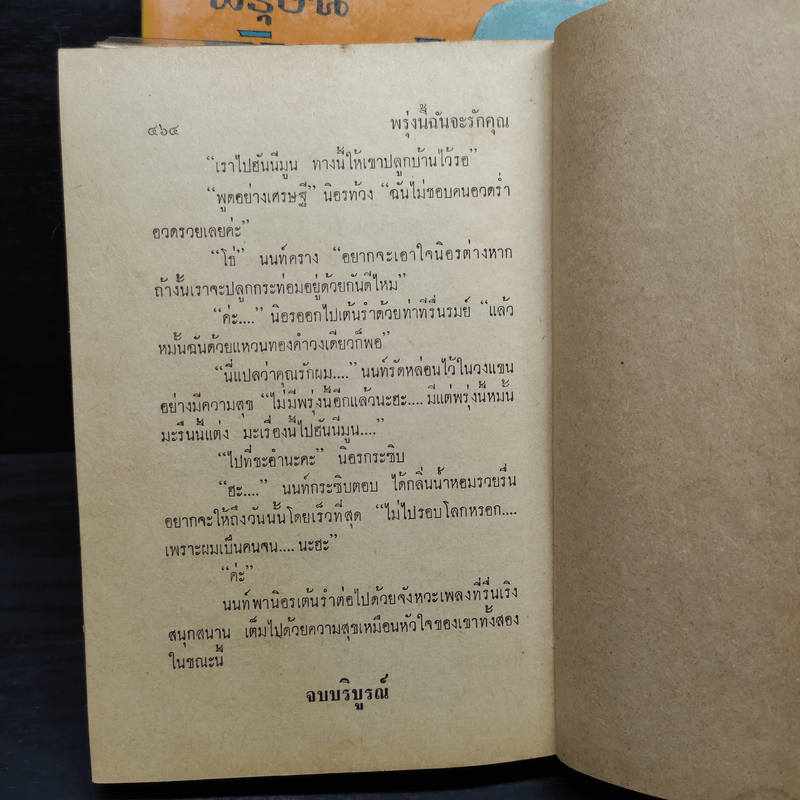 ๔๖๔ พรุ่งนี้ฉันจะรักคุณ
“เราไปฮันนีมูน ทางนี้ให้เขาปลูกบ้านไว้รอ”
“พูดอย่างเศรษฐี” นิอรท้วง “ฉันไม่ชอบคนอวดร่ำ
อวดรวยเลยค่ะ”
“โธ่” นนท์คราง “อยากจะเอาใจนิอรต่างหาก
ถ้างั้นเราจะปลูกกระท่อมอยู่ด้วยกันดีไหม”
“ค่ะ....” นิอรออกไปเต้นรำด้วยท่าทีรื่นรมย์ “แล้ว
หมั้นฉันด้วยแหวนทองคำวงเดียวก็พอ”
“นี่แปลว่าคุณรักผม....” นนท์รัดหล่อนไว้ในวงแขน
อย่างมีความสุข “ไม่มีพรุ่งนี้อีกแล้วนะฮะ.... มีแต่พรุ่งนี้หมั้น
มะรืนนี้แต่ง มะเรื่องนี้ไปฮันนีมูน....”
“ไปที่ชะอำนะคะ” นิอรกระซิบ
“ฮะ....” นนท์กระซิบตอบ ได้กลิ่นน้ำหอมรวยรื่น
อยากจะให้ถึงวันนั้นโดยเร็วที่สุด “ไม่ไปรอบโลกหรอก....
เพราะผมเป็นคนจน.... นะฮะ”
“ค่ะ”
นนท์พานิอรเต้นรำต่อไปด้วยจังหวะเพลงที่รื่นเริง
สนุกสนาน เต็มไปด้วยความสุขเหมือนหัวใจของเขาทั้งสอง
ในขณะนี้
จบบริบูรณ์